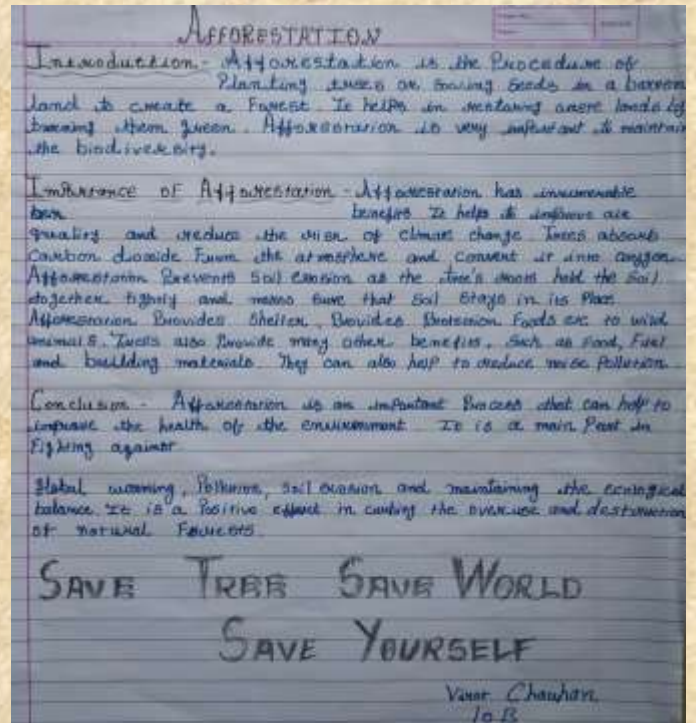 AFFORESTATION
Introduction - Afforestation is the Procedure of
Planting trees or sowing Seeds in a barren
land to create a Forest. It helps in restoring lands by
them green. Afforestation is very important to maintain
the biodiversity.
Importance of Afforestation - Afforestation has innumerable
benefits It helps to improve air
quality and reduce the risk of climate change Trees absorb
Carbon dioxide From the atmosphere and convert it into oxygen
Afforestation Prevents Soil erosion as the tree's roots hold the Soil
together tightly and Sure that Soil Stays in its Place
Afforestation Provides Shelter, Provides Foods etc to wild
animals. also Provide many other benefits, Such as Food, Fuel
and building materials. They can also help to reduce noise Pollution
Conclusion - Afforestation is an important Process that can help to
improve the health of the environment It is a main Part in
Fighting against
Global warming, Pollution, Soil erosion and maintaining the ecological
balance It is a Positive effort in curbing the overuse and destruction
of natural
SAVE TREE SAVE WORLD
SAVE YOURSELF
Chauhan
10 B